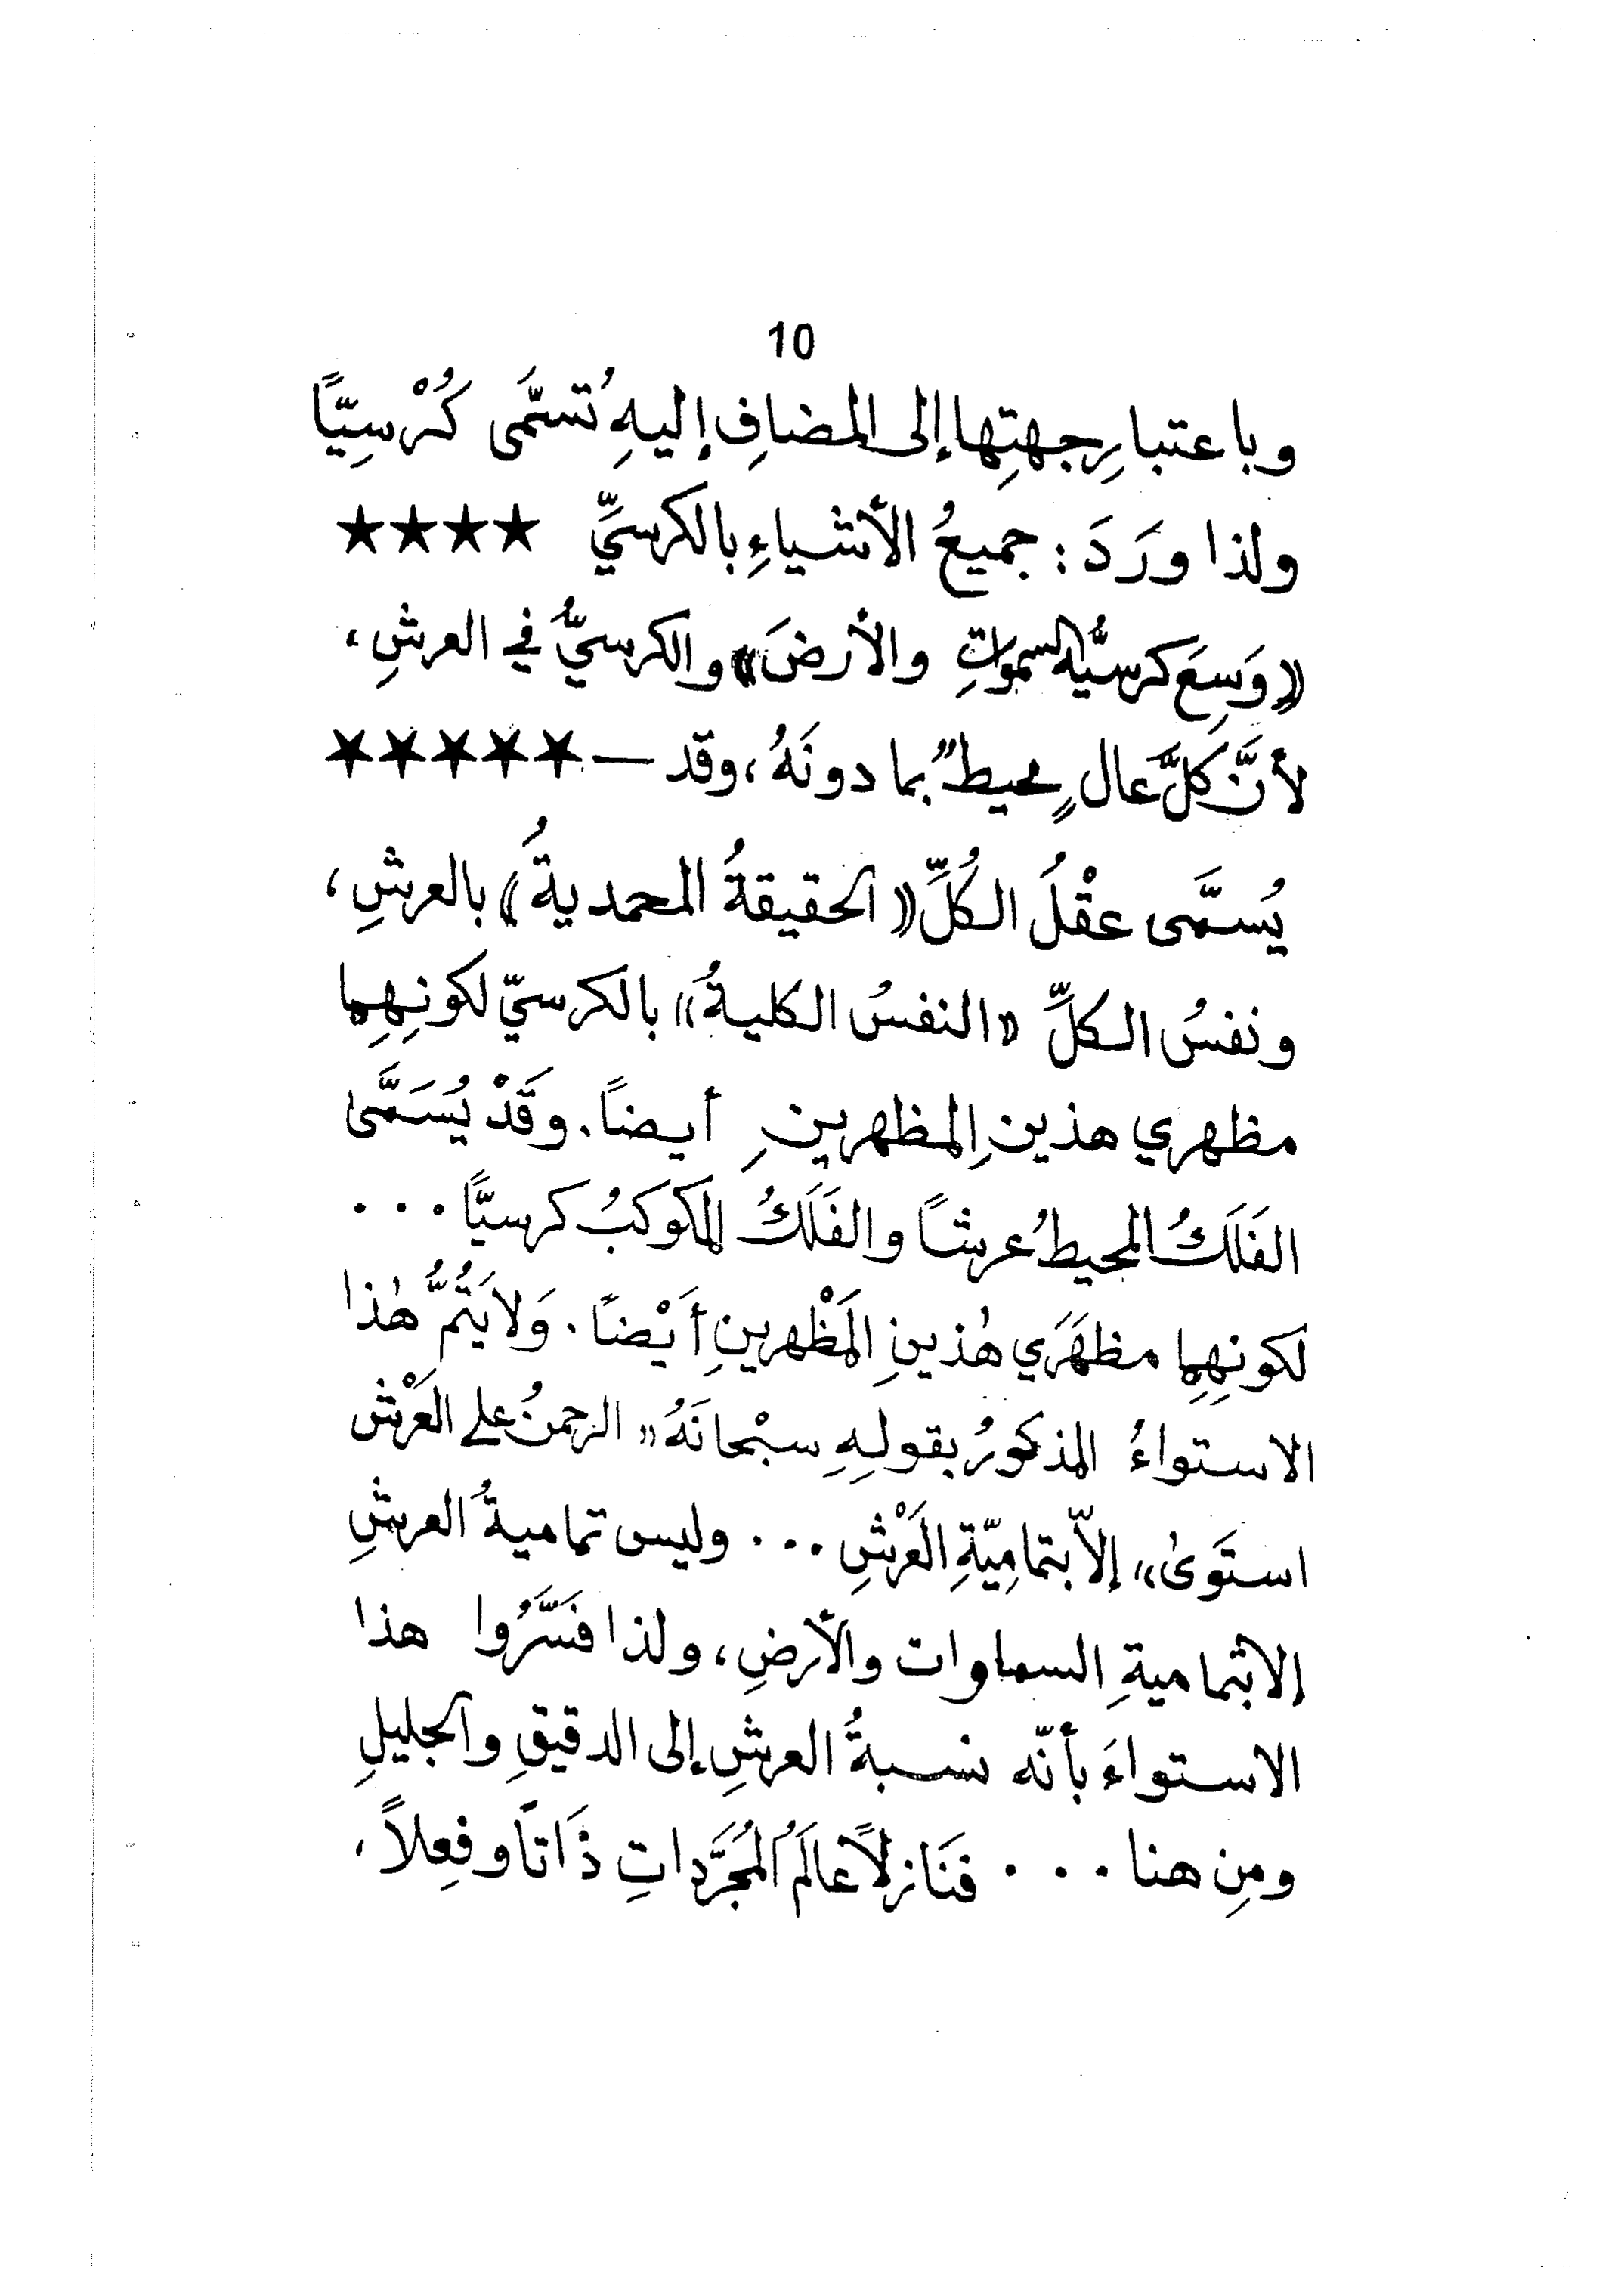 10
وباعتبارِ جهتِها إلى المضافِ إليهِ تُسَمَّى كُرْسِيّاً
ولذا ورَدَ : جميعُ الأشياءِ بالكرسيِّ ★★★★
«وَسِعَ كرسيُّه السمواتِ والأرضَ» والكرسيُّ في العرشِ،
لأنَّ كلَّ عالٍ محيطٌ بما دونَهُ، وقد — ★★★★★
يُسمَّى عقْلُ الكُلِّ «الحقيقةُ المحمديةُ» بالعرشِ،
ونفسُ الكلِّ «النفسُ الكليةُ» بالكرسيّ لكونِهِما
مظهري هذينِ المظهرينِ أيضاً. وقَدْ يُسَمَّى
الفَلَكُ المحيطُ عرشاً والفَلَكُ المكوكبُ كرسيَّاً . . .
لكونِهِما مظهَرَي هٰذينِ المَظْهرينِ أيَْضاً. وَلا يَتُمُّ هٰذا
الاستواءُ المذكورُ بقولِهِ سبْحانَهُ «الرحمنُ على العَرْشِ
استَوىٰ» إلاّ بتمامِيّةِ العَرْشِ . . . وليس تماميةُ العرشِ
إلا بتماميةِ السماوات والأرضِ، ولذا فَسَّرُوا هذا
الاستواءَ بأنّه نسبةُ العرشِ إلى الدقيقِ والجليلِ
ومِن هنا . . . فَنَازلاً عالَمُ المُجَرَّداتِ ذَاتاً وفِعلاً،